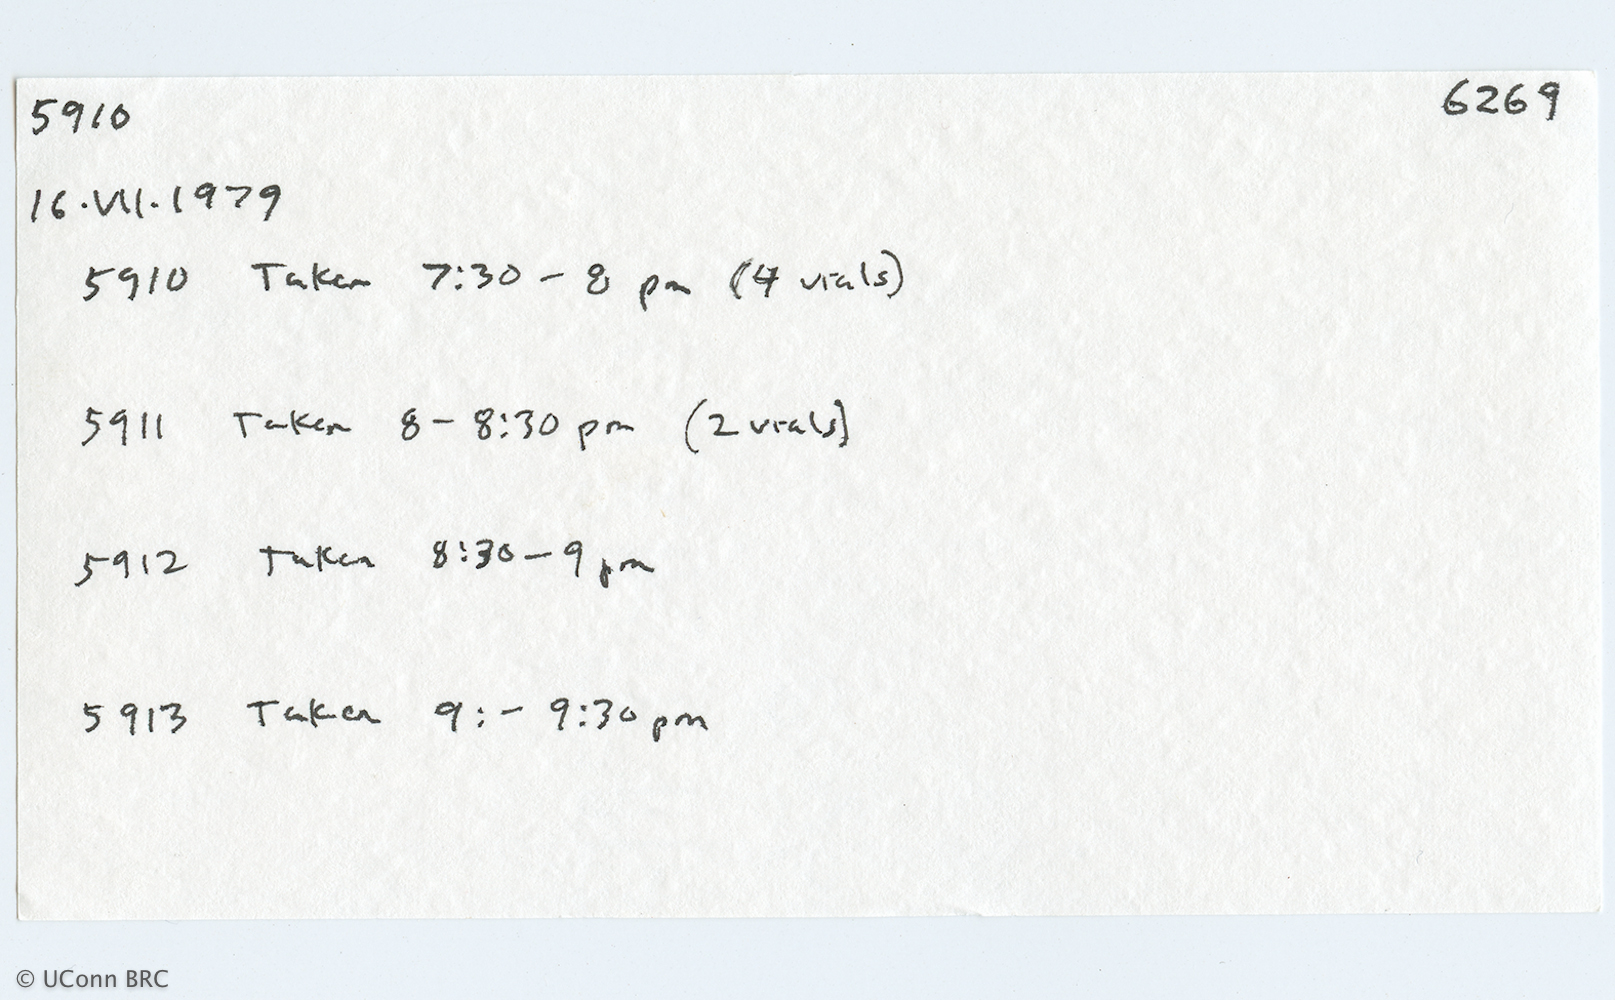 5910 6269
16.VII.1979
5910 Taken 7:30 - 8 pm (4 vials)
5911 Taken 8 - 8:30 pm (2 vials)
5912 Taken 8:30 - 9 pm
5913 Taken 9: - 9:30 pm
© UConn BRC